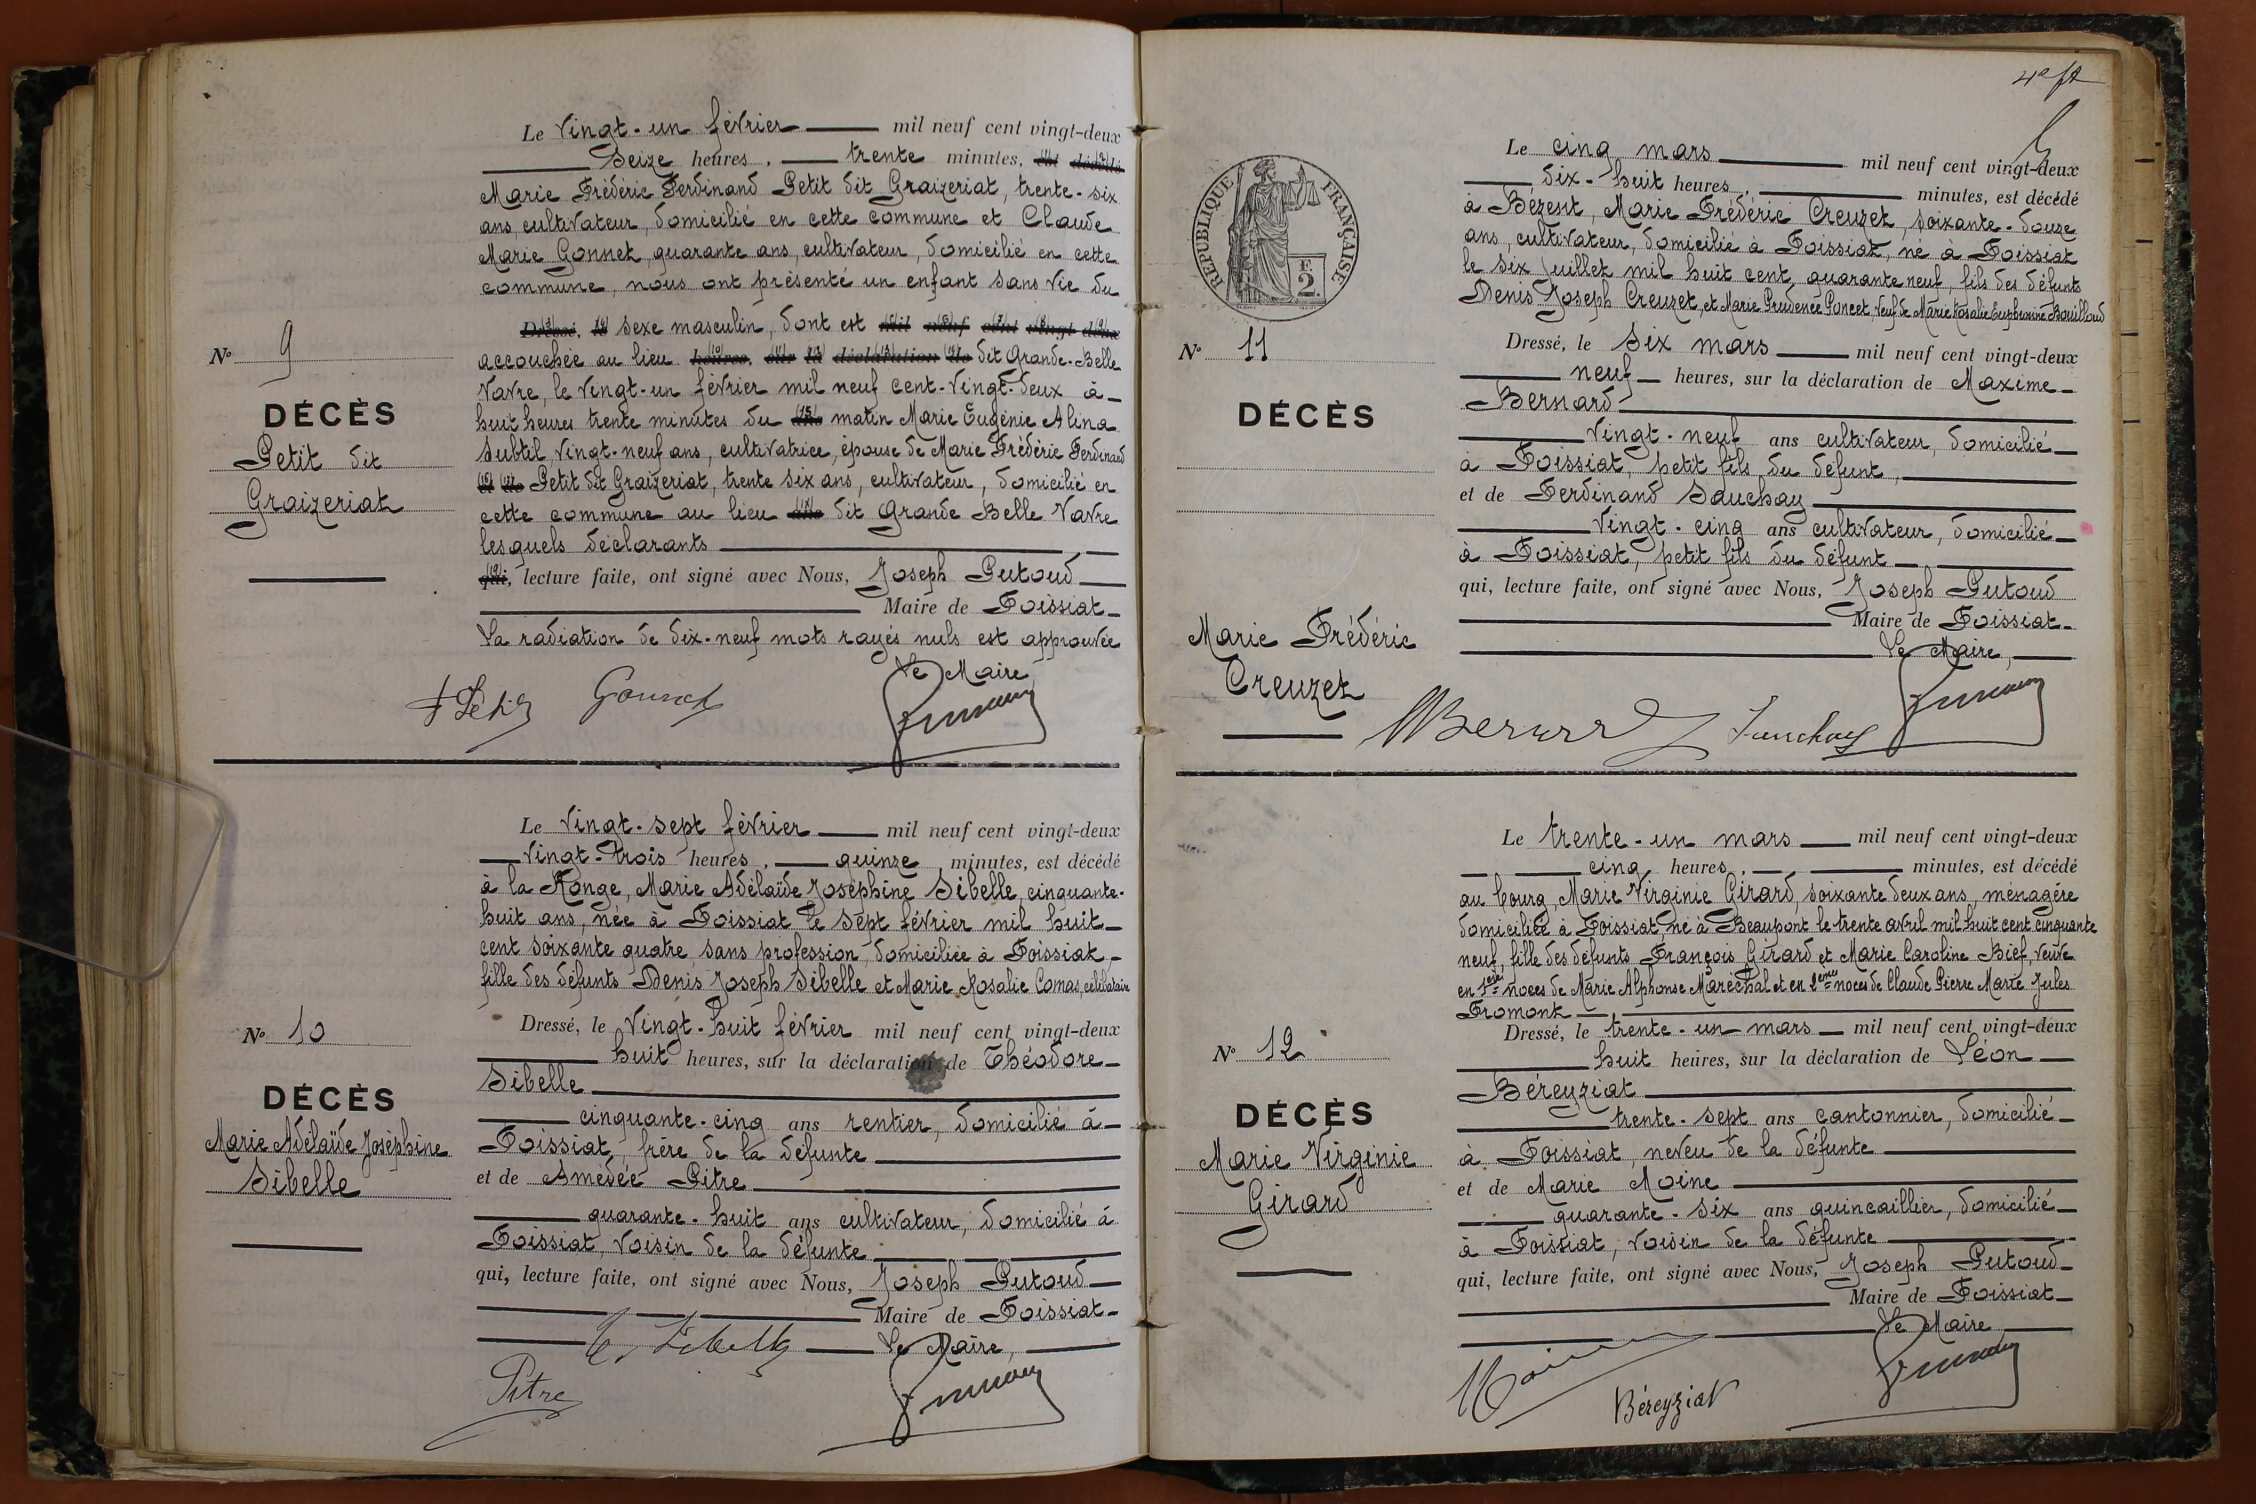 Le vingt-un février mil neuf cent vingt-deux
seize heures, trente minutes, est décédé
Marie Frédéric Ferdinand Petit dit Graizeriat, trente-six
ans cultivateur, domicilié en cette commune et Claude
Marie Gonnet, quarante ans, cultivateur, domicilié en cette
commune, nous ont présenté un enfant sans vie du
Dressé, le sexe masculin, dont est mil neuf cent vingt deux
accouchée au lieu heures, sur la déclaration de dit Grande-Belle
Vavre, le vingt-un février mil neuf cent-vingt-deux à
huit heures trente minutes du matin Marie Eugénie Alina
Subtil, vingt-neuf ans, cultivatrice, épouse de Marie Frédéric Ferdinand
et de Petit dit Graizeriat, trente six ans, cultivateur, domicilié en
cette commune au lieu ans dit Grande Belle Vavre
lesquels déclarants
qui, lecture faite, ont signé avec Nous, Joseph Putoud
Maire de Foissiat
La radiation de dix-neuf mots rayés nuls est approuvée
Le Maire,
Gonnet
N° 9
DÉCÈS
Petit dit
Graizeriat
Le vingt-sept février mil neuf cent vingt-deux
vingt-trois heures, quinze minutes, est décédé
à la Ronge, Marie Adélaïde Joséphine Sibelle, cinquante-
huit ans, née à Foissiat le sept février mil huit
cent soixante quatre, sans profession, domiciliée à Foissiat,
fille des défunts Denis Joseph Sibelle et Marie Rosalie Comas, célibataire
Dressé, le vingt-huit février mil neuf cent vingt-deux
huit heures, sur la déclaration de Théodore
Sibelle
cinquante-cinq ans rentier, domicilié à
Foissiat, frère de la défunte
et de Amédée Pitre
quarante-huit ans cultivateur, domicilié à
Foissiat, voisin de la défunte
qui, lecture faite, ont signé avec Nous, Joseph Putoud
Maire de Foissiat
Le Maire,
Pitre
N° 10
DÉCÈS
Marie Adélaïde Joséphine
Sibelle
4e ft
RÉPUBLIQUE FRANÇAISE
F.
2.
Le cinq mars mil neuf cent vingt-deux
dix-huit heures, minutes, est décédé
à Bézent, Marie Frédéric Creuzet, soixante-douze
ans, cultivateur, domicilié à Foissiat, né à Foissiat
le six juillet mil huit cent quarante neuf, fils des défunts
Denis Joseph Creuzet, et Marie Prudence Poncet, Veuf de Marie Rosalie Euphrosine Bouilloud
Dressé, le six mars mil neuf cent vingt-deux
neuf heures, sur la déclaration de Maxime
Bernard
vingt-neuf ans cultivateur, domicilié
à Foissiat, petit fils du défunt,
et de Ferdinand Sauchay
vingt-cinq ans cultivateur, domicilié
à Foissiat, petit fils du défunt
qui, lecture faite, ont signé avec Nous, Joseph Putoud
Maire de Foissiat
Le Maire,
N° 11
DÉCÈS
Marie Frédéric
Creuzet
Le trente-un mars mil neuf cent vingt-deux
cinq heures, minutes, est décédé
au bourg, Marie Virginie Girard, soixante deux ans, ménagère
domiciliée à Foissiat, né à Beaupont le trente avril mil huit cent cinquante
neuf, fille des défunts François Girard et Marie Caroline Bief, veuve
en 1ères noces de Marie Alphonse Maréchal et en 2èmes noces de Claude Pierre Marie Jules
Fromont
Dressé, le trente-un mars mil neuf cent vingt-deux
huit heures, sur la déclaration de Léon
Béreyziat
trente-sept ans cantonnier, domicilié
à Foissiat, neveu de la défunte
et de Marie Moine
quarante-six ans quincaillier, domicilié
à Foissiat, voisin de la défunte
qui, lecture faite, ont signé avec Nous, Joseph Putoud
Maire de Foissiat
Le Maire
Béreyziat
N° 12
DÉCÈS
Marie Virginie
Girard